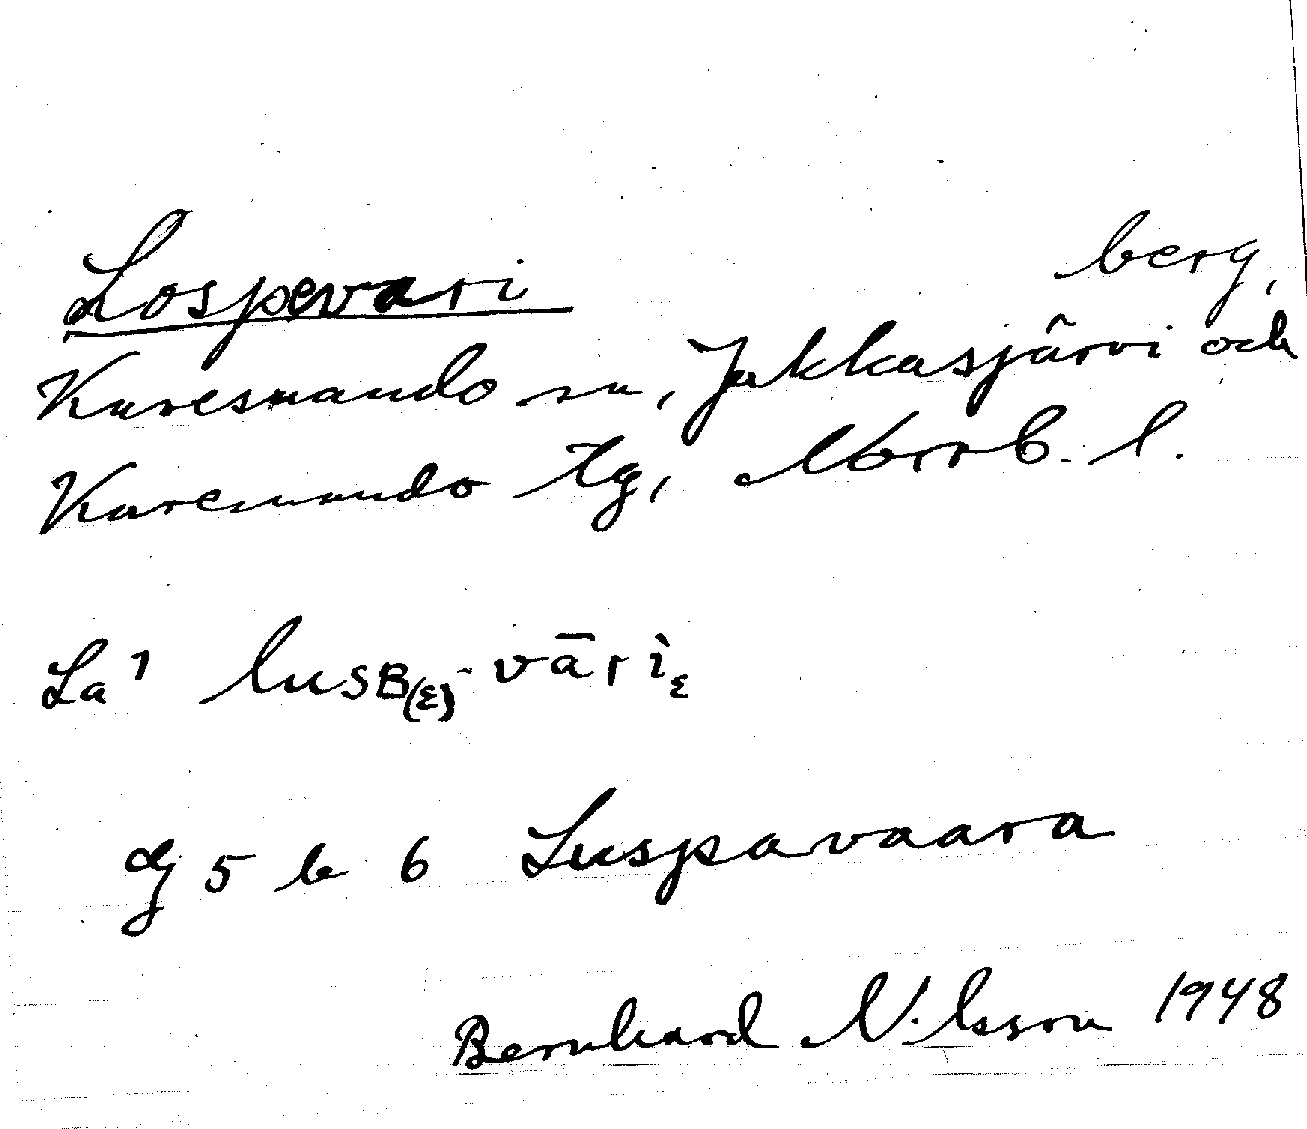 Lospevari berg,
Karesuando sn, Jukkasjärvi och
Karesuando tg, Norrb. l.
La 1 lusʙ₍ᵋ₎-vārìᵋ
dj 5 b 6 Luspavaara
Bernhard Nilsson 1948